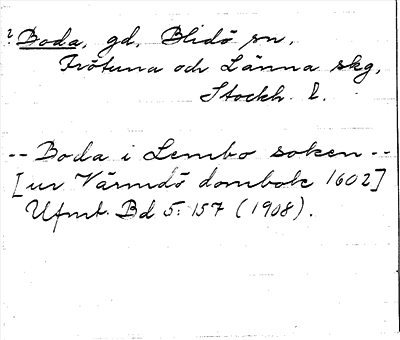 ? Boda, gd, Blidö sn,
Frötuna och Länna skg,
Stockh. l.
-- Boda i Lembo soken --
[ur Värmdö dombok 1602]
Ufmt. Bd 5: 157 (1908).